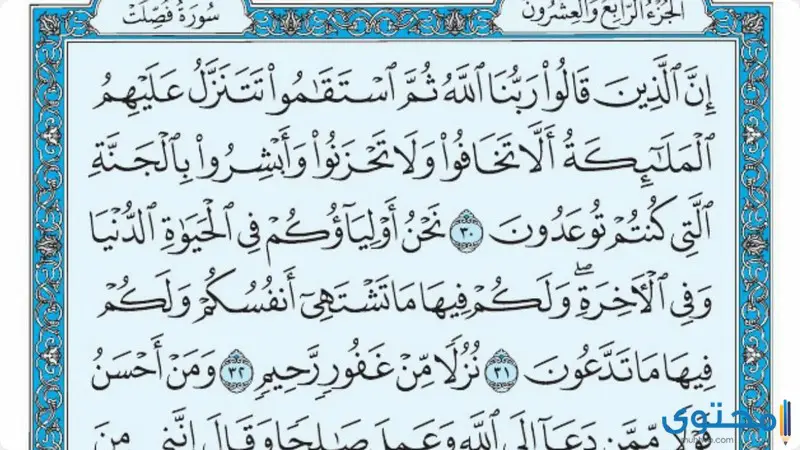 سُورَةُ فُصِّلَتْ
الجُزْءُ الرَّابِعُ وَالعِشْرُونَ
إِنَّ ٱلَّذِينَ قَالُواْ رَبُّنَا ٱللَّهُ ثُمَّ ٱسْتَقَـٰمُواْ تَتَنَزَّلُ عَلَيْهِمُ
ٱلْمَلَـٰٓئِكَةُ أَلَّا تَخَافُواْ وَلَا تَحْزَنُواْ وَأَبْشِرُواْ بِٱلْجَنَّةِ
ٱلَّتِي كُنتُمْ تُوعَدُونَ ٣٠ نَحْنُ أَوْلِيَآؤُكُمْ فِي ٱلْحَيَوٰةِ ٱلدُّنْيَا
وَفِي ٱلْأَخِرَةِۖ وَلَكُمْ فِيهَا مَا تَشْتَهِيٓ أَنفُسُكُمْ وَلَكُمْ
فِيهَا مَا تَدَّعُونَ ٣١ نُزُلًا مِّنْ غَفُورٍ رَّحِيمٍ ٣٢ وَمَنْ أَحْسَنُ
قَوْلًا مِّمَّن دَعَآ إِلَى ٱللَّهِ وَعَمِلَ صَـٰلِحًا وَقَالَ إِنَّنِي مِنَ
محتوى